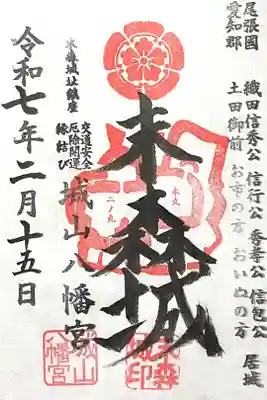 尾張國
愛知郡
織田信秀公 信行公 秀孝公 信包公
土田御前 お市の方 おいぬの方 居城
末森城
本丸
二ノ丸
末森城址鎮座
交通安全
厄除開運
縁結び
城山八幡宮
令和七年二月十五日
末森
城印
城山
八幡宮